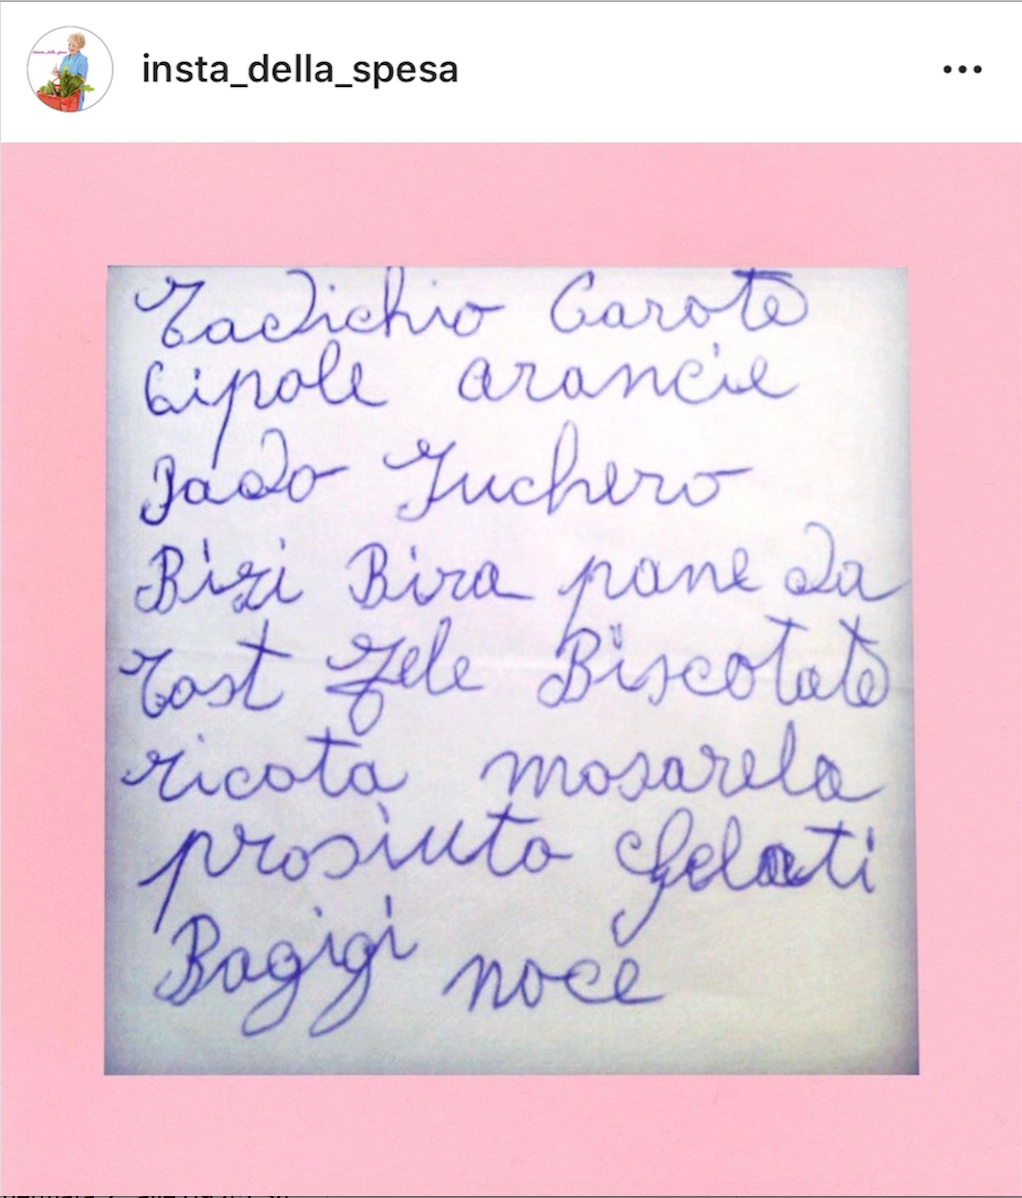 insta_della_spesa
Radichio Carote
Cipole arancie
Dado Zuchero
Bizi Bira pane da
Tost Fete Biscotate
ricota mosarela
prosiuto Gelati
Bagigi noce